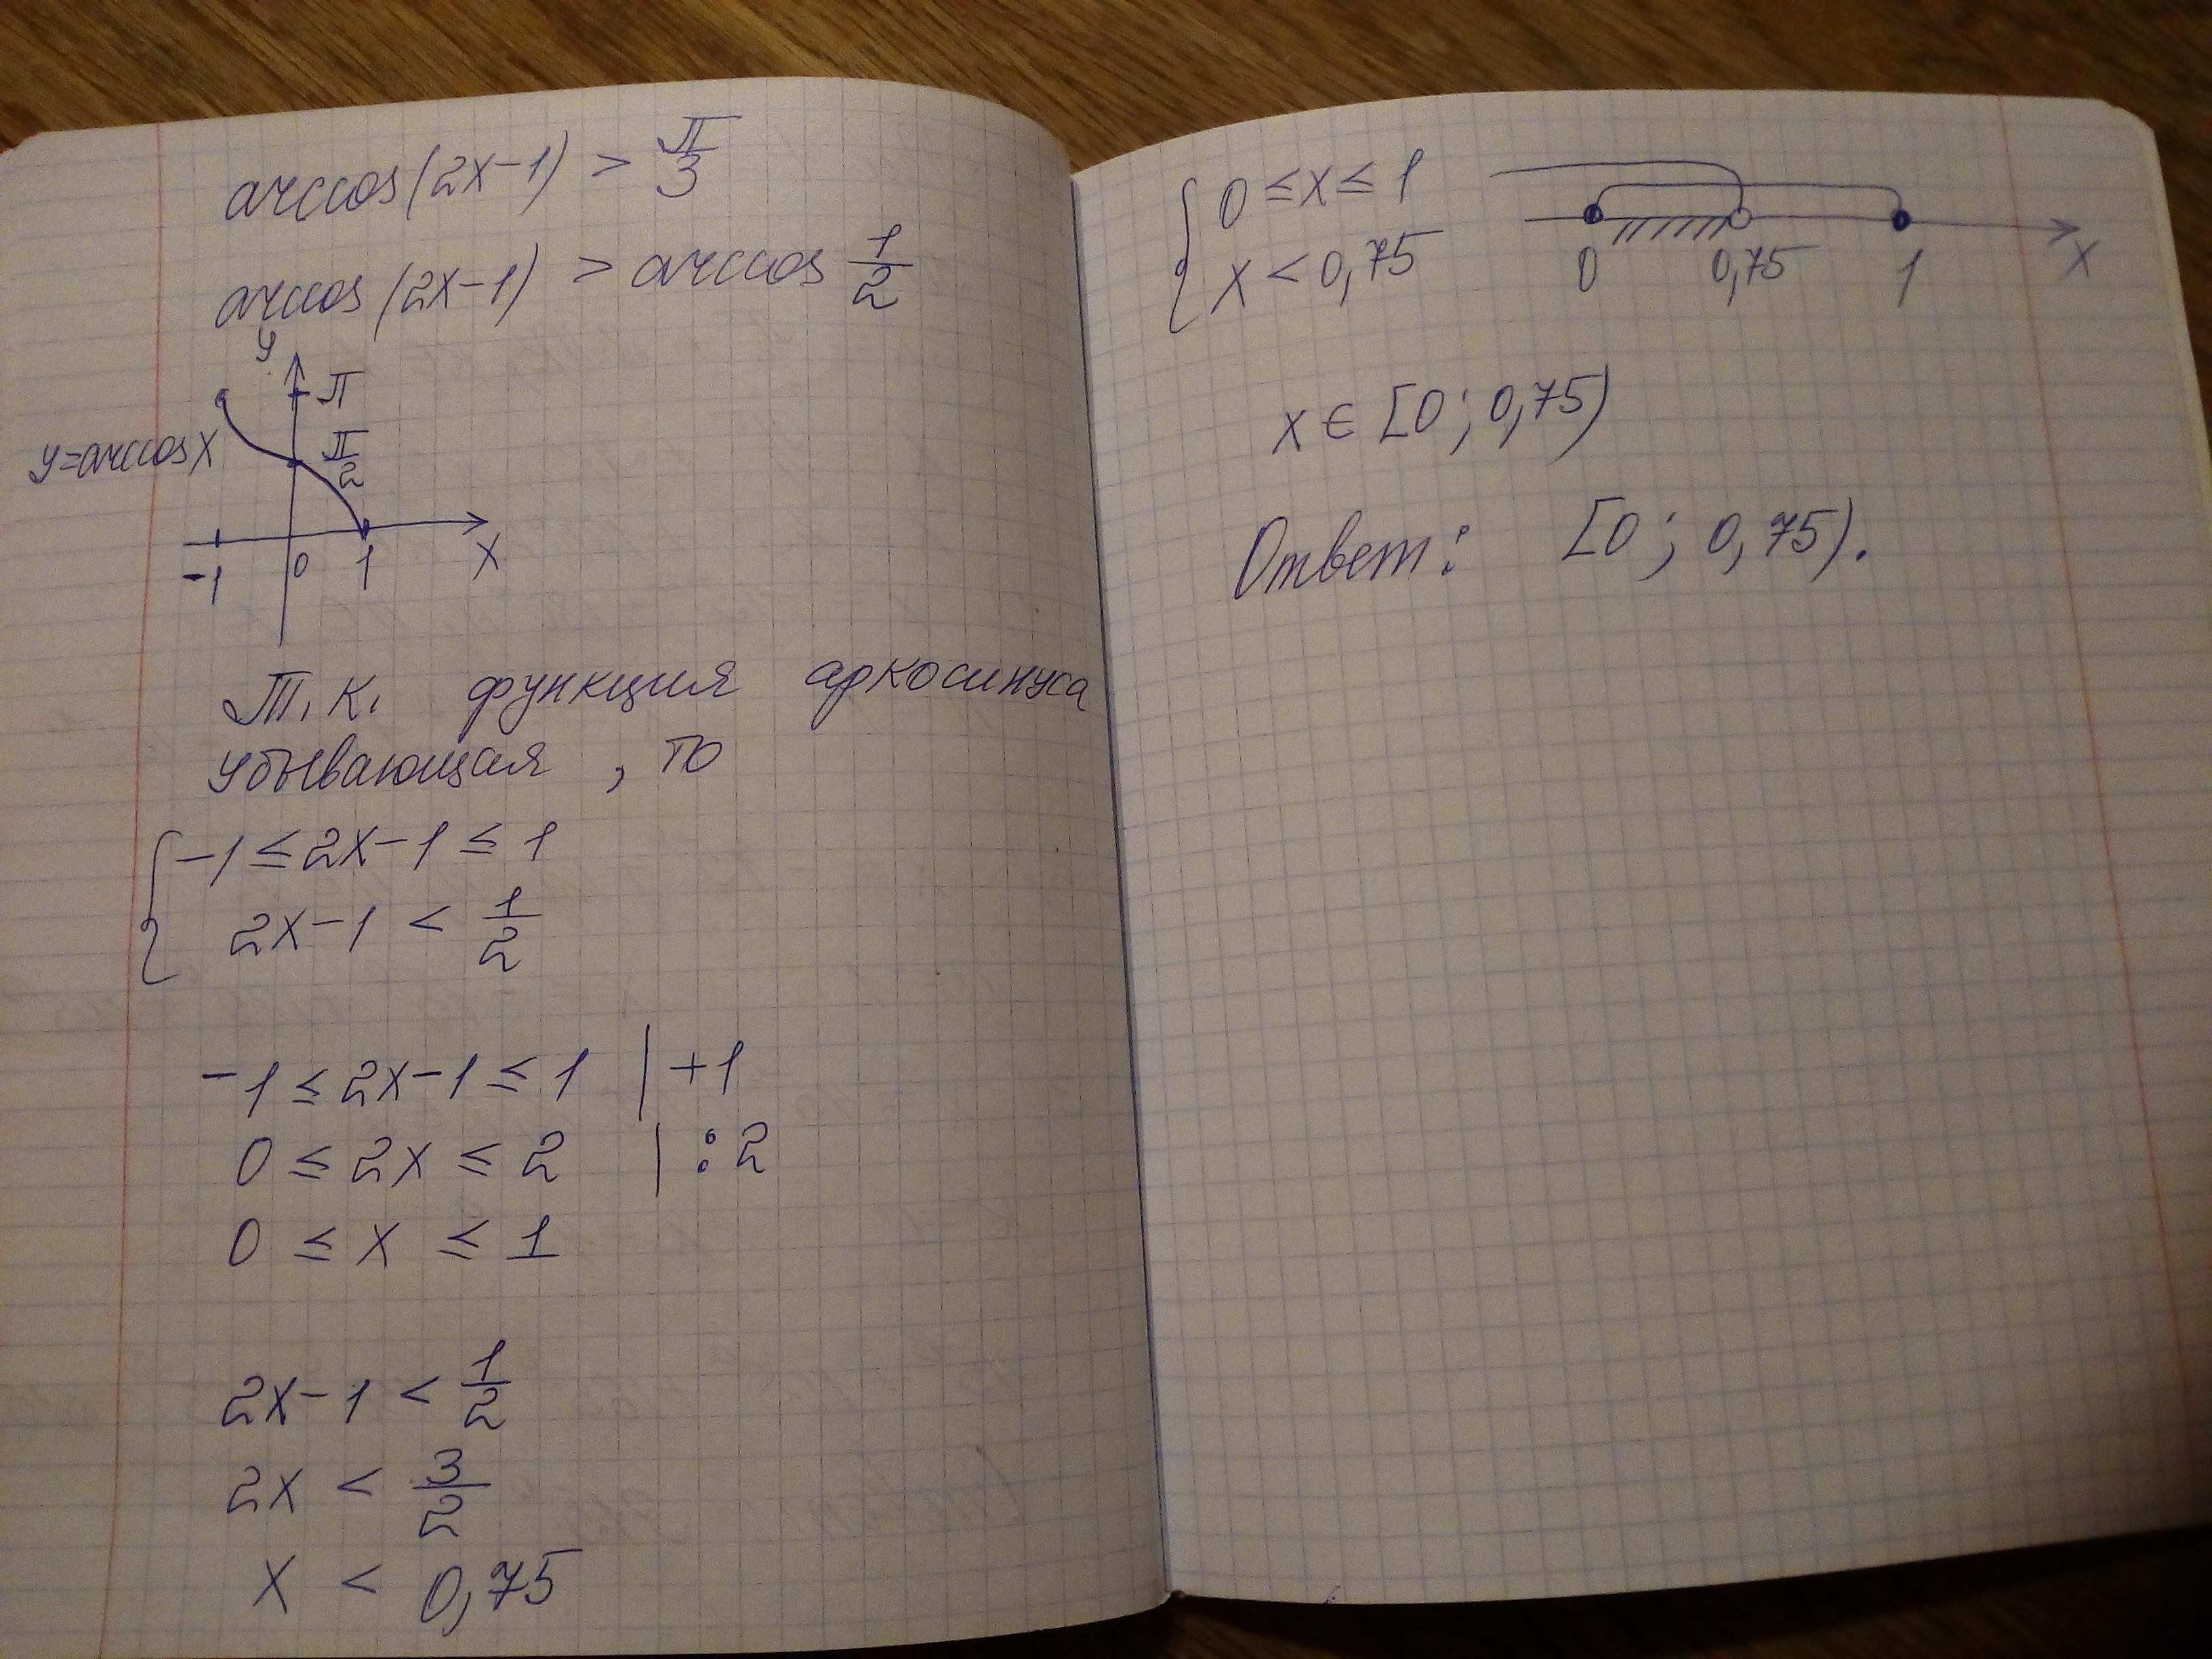 arccos(2x-1) > π/3
arccos(2x-1) > arccos 1/2
y
π
y=arccosx
π/2
-1 0 1 x
Т.к. функция аркосинуса
убывающая, то
{ -1 ≤ 2x-1 ≤ 1
2x-1 < 1/2
-1 ≤ 2x-1 ≤ 1 | +1
0 ≤ 2x ≤ 2 | :2
0 ≤ x ≤ 1
2x-1 < 1/2
2x < 3/2
x < 0,75
{ 0 ≤ x ≤ 1
x < 0,75
0 0,75 1 x
x ∈ [0; 0,75)
Ответ: [0; 0,75).